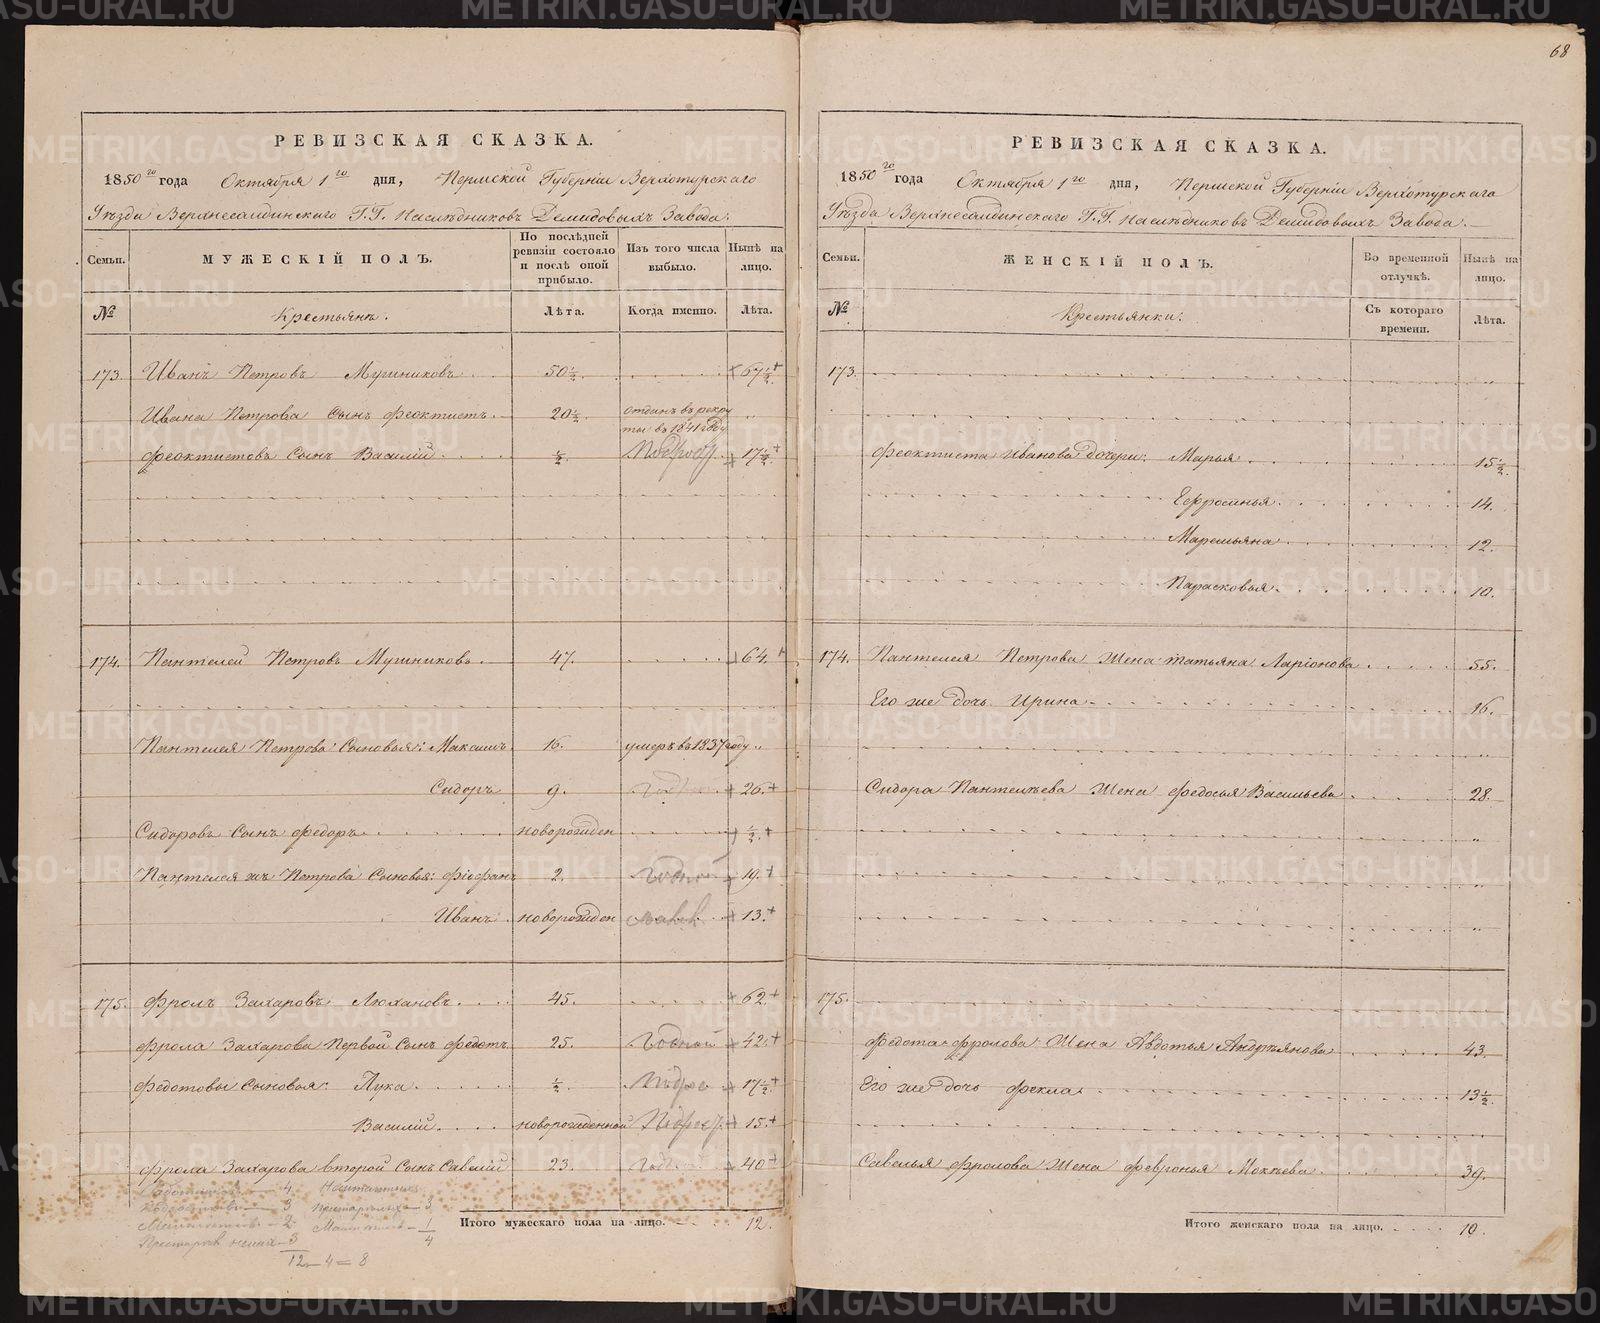 68
РЕВИЗСКАЯ СКАЗКА.
1850го года Октября 1го дня, Пермской Губернiи Верхотурскаго
Уѣзда Верхнесалдинскаго Г.Г. Наслѣдниковъ Демидовыхъ Завода.
Семьи.
МУЖЕСКІЙ ПОЛЪ.
По послѣдней ревизіи состояло и послѣ оной прибыло.
Изъ того числа выбыло.
Нынѣ на лицо.
№
Крестьянъ.
Лѣта.
Когда именно.
Лѣта.
173. Иванъ Петровъ 50½. 67½.
Ивана Петрова Сынъ Феоктистъ. 20½. отданъ въ рекру
ты въ 1841 году
Феоктистовъ Сынъ Василій ½. 17½.
174. Пантелей Петровъ 47. 64.
Пантелея Петрова Сыновья: Максимъ 16. умеръ въ 1837 году
Сидоръ 9. 26.
Сидоровъ Сынъ Федоръ новорожден ½.
Пантелея жъ Петрова Сыновья: Фіофанъ 2. Годной 19.
Иванъ новорожден 13.
175. Фролъ Захаровъ Люхановъ. 45. 62.
Фрола Захарова Первой Сынъ Федотъ 25. Годной 42.
Федотовы Сыновья: Лука ½. 17½
Василій новорожденной 15.
Фрола Захарова второй Сынъ Савелій 23. 40
Итого мужескаго пола на лицо. 12.
12 – 4 = 8
РЕВИЗСКАЯ СКАЗКА.
1850го года Октября 1го дня, Пермской Губернiи Верхотурскаго
Уѣзда Верхнесалдинскаго Г.Г. Наслѣдниковъ Демидовыхъ Завода.
Семьи.
ЖЕНСКІЙ ПОЛЪ.
Во временной отлучкѣ.
Нынѣ на лицо.
№
Крестьянки.
Съ котораго времени.
Лѣта.
173.
Феоктиста Иванова дочери: Марья 15½.
Ефросинья 14.
Маремьяна 12.
Парасковья 10.
174. Пантелея Петрова Жена Татьяна Ларіонова 55.
Его же дочь Ирина 16.
Сидора Пантелѣева Жена Федосья Васильева 28.
175.
Федота Фролова Жена Авдотья Андреянова 43.
Его же дочь Фекла 13½.
Савелья Фролова Жена Февронья Мокѣева 39.
Итого женскаго пола на лицо. 10.
METRIKI.GASO-URAL.RU